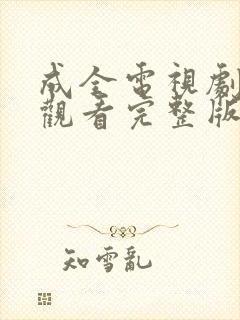 成全電視劇
觀看完整版
知雪亂